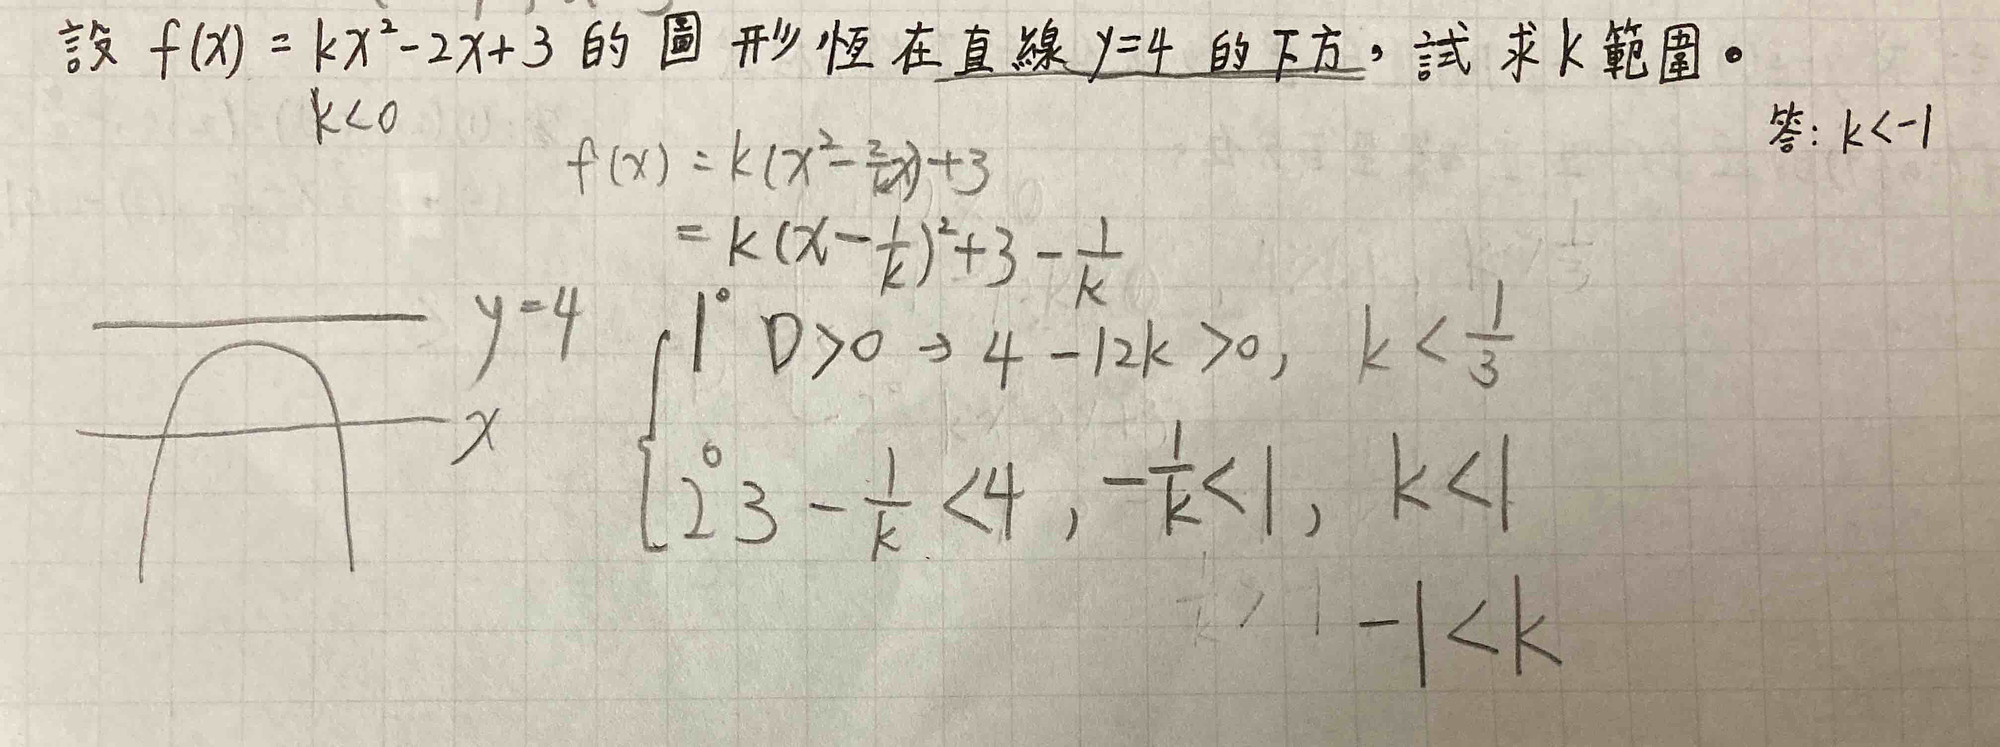 設 f(x) = kx²-2x+3 的圖形恆在直線 y=4 的下方，試求k範圍。
k<0
答: k<-1
f(x) = k(x²-2/kx)+3
= k(x-1/k)²+3-1/k
y=4
1° D>0 → 4-12k>0, k<1/3
x
2° 3-1/k<4, -1/k<1, k<1
-1<k